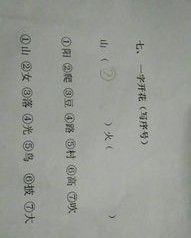 七、一字开花(写序号)
山( ⑦ ) 火( )
①阳 ②爬 ③豆 ④路 ⑤村 ⑥高 ⑦吹
①山 ②女 ③落 ④光 ⑤鸟 ⑥披 ⑦大